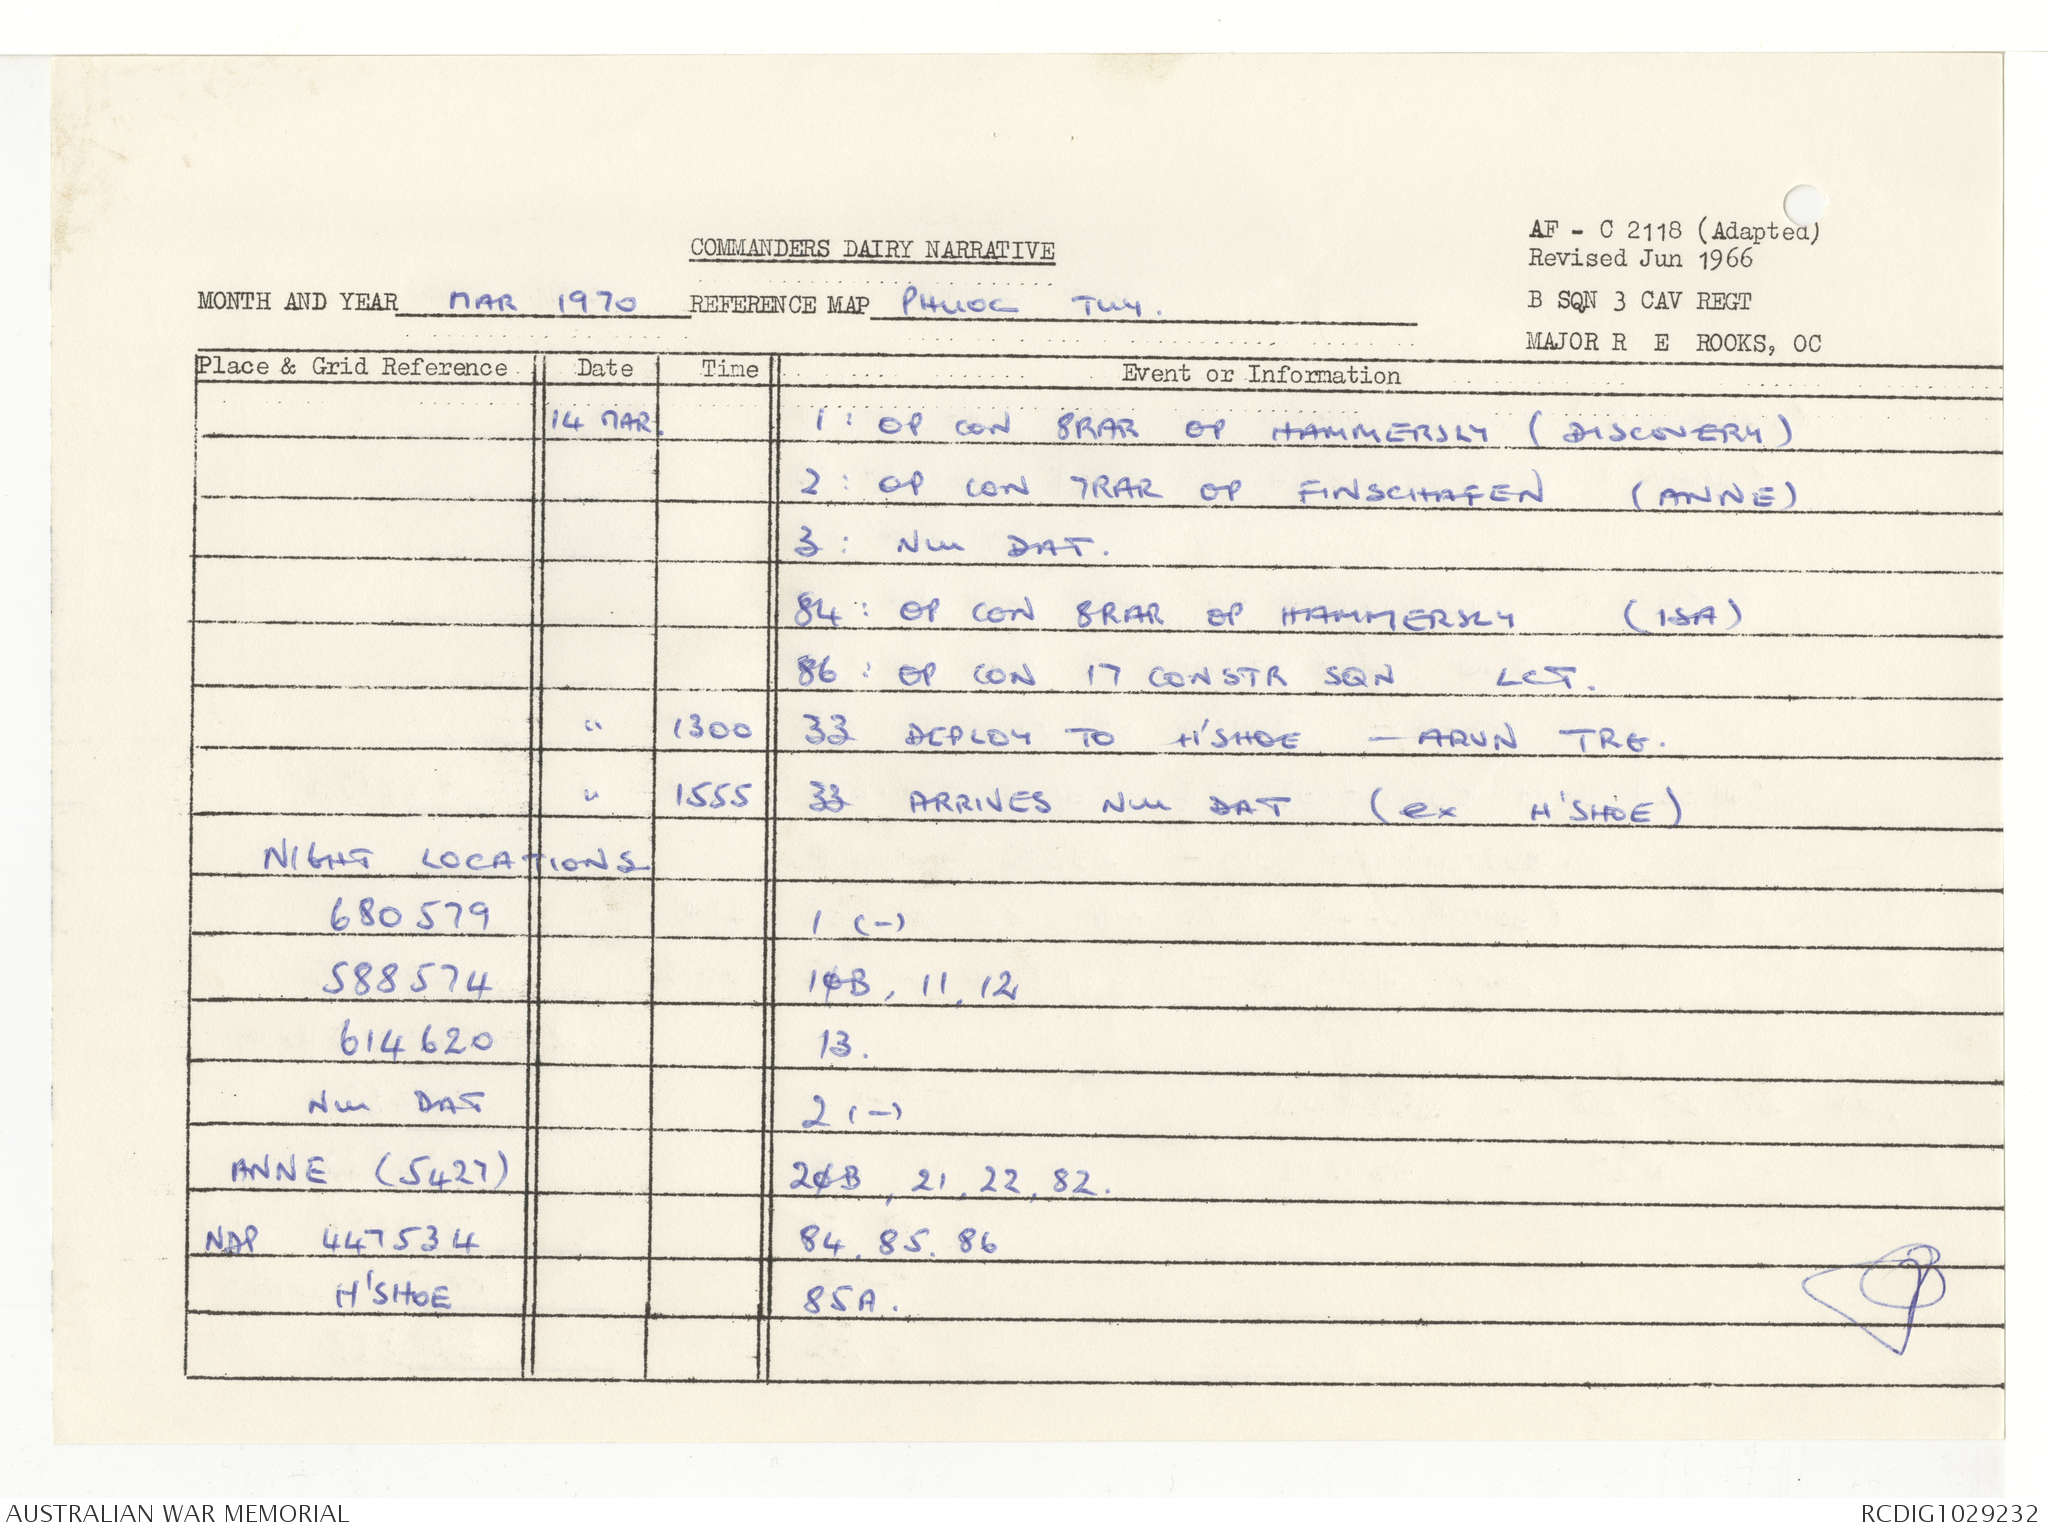 AF - C 2118 (Adapted)
COMMANDERS DAIRY NARRATIVE
Revised Jun 1966
MONTH AND YEAR MAR 1970 REFERENCE MAP PHUOC TUY.
B SQN 3 CAV REGT
MAJOR R E ROOKS, OC
Place & Grid Reference Date Time Event or Information
14 MAR. 1: OP CON 8RAR OP HAMMERSLY (DISCOVERY)
2: OP CON 7RAR OP FINSCHAFEN (ANNE)
3: NUI DAT.
84: OP CON 8RAR OP HAMMERSLY (ISA)
86: OP CON 17 CONSTR SQN LCT.
" 1300 33 DEPLOY TO H'SHOE - ARVN TRG.
" 1555 33 ARRIVES NUI DAT (ex H'SHOE)
NIGHT LOCATIONS
680579 1 (-)
588574 10B, 11, 12
614620 13.
NUI DAT 2 (-)
ANNE (5427) 20B, 21, 22, 82.
NDP 447534 84, 85, 86
H'SHOE 85A.
AUSTRALIAN WAR MEMORIAL
RCDIG1029232